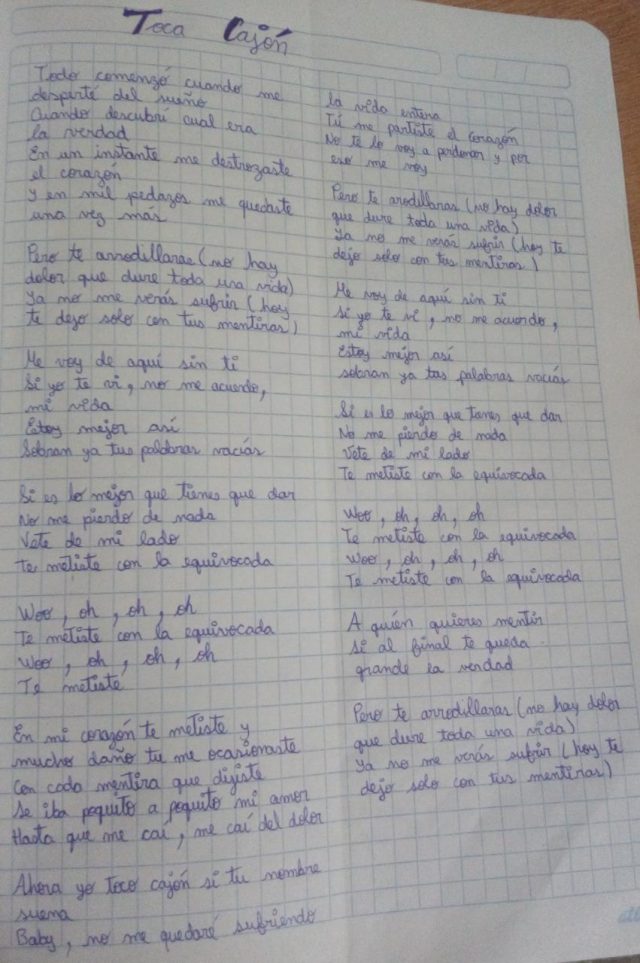 Toca Cajón
Todo comenzó cuando me
desperté del sueño
Cuando descubrí cual era
la verdad
En un instante me destrozaste
el corazón
Y en mil pedazos me quedaste
una vez más
Pero te arrodillaras (no hay
dolor que dure toda una vida)
Ya no me verás sufrir (hoy
te dejo solo con tus mentiras)
Me voy de aquí sin ti
Si yo te vi, no me acuerdo,
mi vida
Estoy mejor así
Sobran ya tus palabras vacías
Si es lo mejor que tienes que dar
No me pierdo de nada
Vete de mi lado
Te metiste con la equivocada
Woo, oh, oh, oh
Te metiste con la equivocada
Woo, oh, oh, oh
Te metiste
En mi corazón te metiste y
mucho daño tu me ocasionaste
Con cada mentira que dijiste
Se iba poquito a poquito mi amor
Hasta que me caí, me caí del dolor
Ahora yo toco cajón si tu nombre
suena
Baby, no me quedaré sufriendo
la vida entera
Tú me partiste el corazón
No te lo voy a perdonar y por
eso me voy
Pero te arodillaras (no hay dolor
que dure toda una vida)
Ya no me verás sufrir (hoy te
dejo solo con tus mentiras)
Me voy de aquí sin ti
Si yo te vi, no me acuerdo,
mi vida
Estoy mejor así
sobran ya tas palabras vacías
Si es lo mejor que tanes que dar
No me pierdo de nada
Vete de mi lado
Te metiste con la equivocada
Woo, oh, oh, oh
Te metiste con la equivocada
Woo, oh, oh, oh
Te metiste con la equivocada
A quién quieres mentir
si al final te queda
grande la verdad
Pero te arrodillaras (no hay dolor
que dure toda una vida)
Ya no me verás sufrir (hoy te
dejo solo con tus mentiras)